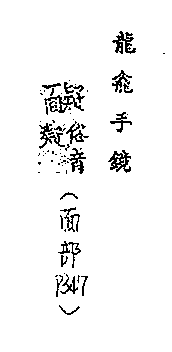 龍飛手鏡
俗音
（面部P347）